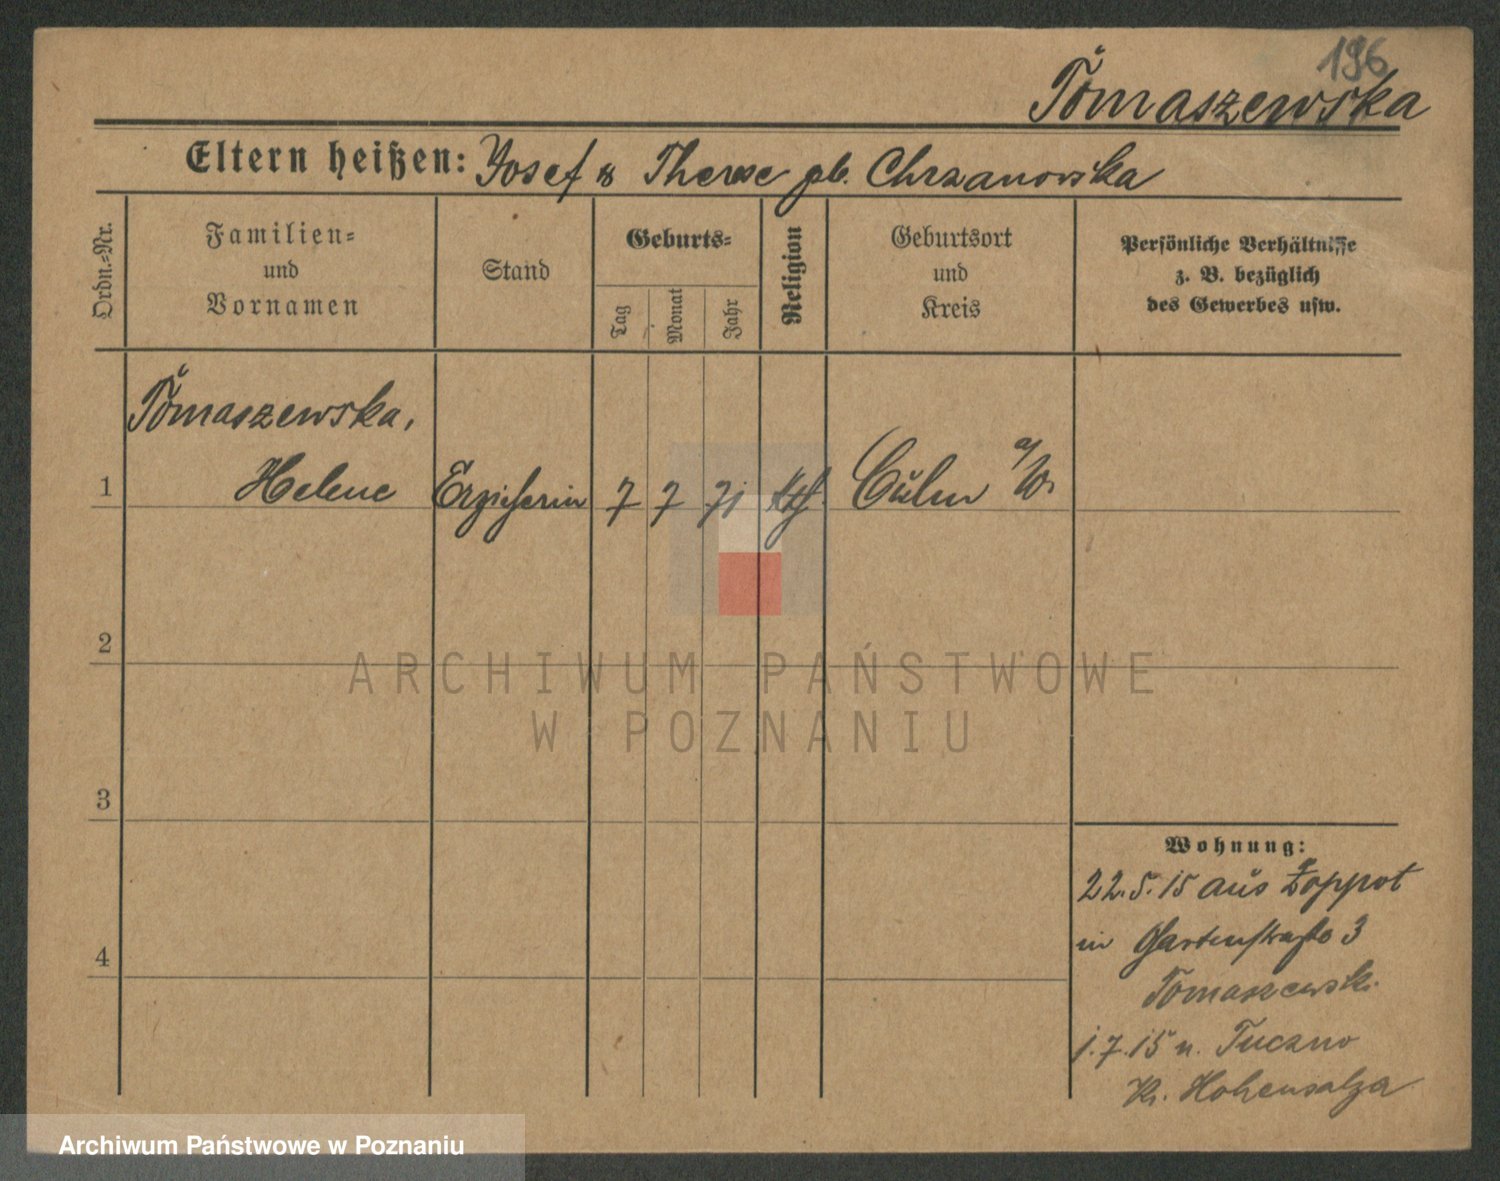 196
Tomaszewska
Eltern heißen: Josef & Therese gb. Chrzanowska
Ordn.=Nr.
Familien=
und
Vornamen
Stand
Geburts=
Tag
Monat
Jahr
Religion
Geburtsort
und
Kreis
Persönliche Verhältnisse
z. B. bezüglich
des Gewerbes usw.
Tomaszewska,
1 Helene Erzieherin 7 7 71 kth. Culm a/W.
2
3
4
Wohnung:
22.5.15 aus Zoppot
in Gartenstraße 3
Tomaszewsk.
1.7.15 n. Tuczno
Kr. Hohensalza
ARCHIWUM PAŃSTWOWE
W POZNANIU
Archiwum Państwowe w Poznaniu